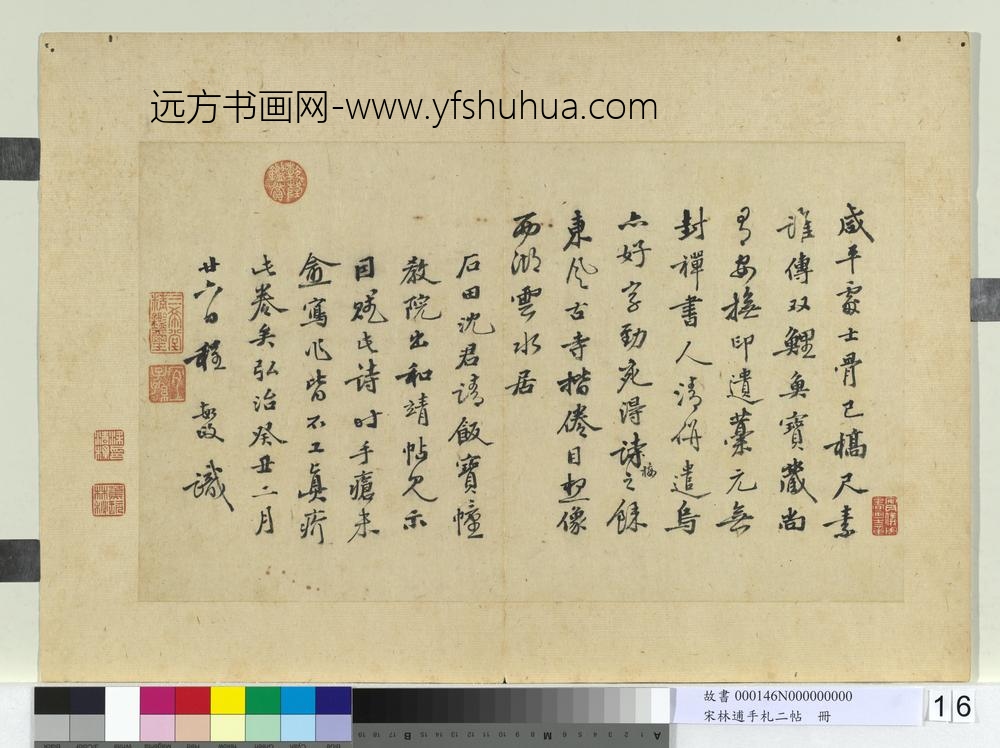 远方书画网-www.yfshuhua.com
咸平處士骨已槁尺素
誰傳双鯉魚寶藏尚
有安撫印遺藁元無
封禪書人清併遣烏
亦好字勁宛得詩之餘
梅
東風古寺揩倦目想像
西湖雲水居
石田沈君請飯寶幢
教院出和靖帖見示
因賦此詩時手瘡未
愈寫作皆不工真疥
此卷矣弘治癸丑二月
廿六日程敏識
故書 000146N000000000
宋林逋手札二帖 冊
16